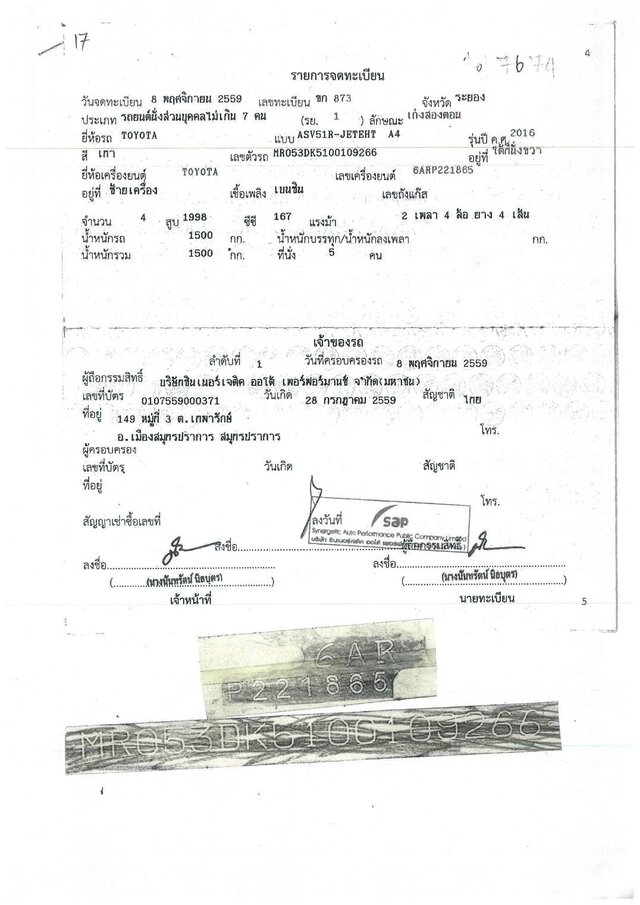 17
7674
4
รายการจดทะเบียน
วันจดทะเบียน 8 พฤศจิกายน 2559 เลขทะเบียน ขก 873 จังหวัด ระยอง
ประเภท รถยนต์นั่งส่วนบุคคลไม่เกิน 7 คน (รย. 1 ) ลักษณะ เก๋งสองตอน
ยี่ห้อรถ TOYOTA แบบ ASV51R-JETEHT A4 รุ่นปี ค.ศ. 2016
สี เทา เลขตัวรถ MR053DK5100109266 อยู่ที่ ใต้ที่นั่งขวา
ยี่ห้อเครื่องยนต์ TOYOTA เลขเครื่องยนต์ 6ARP221865
อยู่ที่ ซ้ายเครื่อง เชื้อเพลิง เบนซิน เลขถังแก๊ส
จำนวน 4 สูบ 1998 ซีซี 167 แรงม้า 2 เพลา 4 ล้อ ยาง 4 เส้น
น้ำหนักรถ 1500 กก. น้ำหนักบรรทุก/น้ำหนักลงเพลา กก.
น้ำหนักรวม 1500 กก. ที่นั่ง 5 คน
เจ้าของรถ
ลำดับที่ 1 วันที่ครอบครองรถ 8 พฤศจิกายน 2559
ผู้ถือกรรมสิทธิ์ บริษัทซินเนอร์เจติค ออโต้ เพอร์ฟอร์มานซ์ จำกัด(มหาชน)
เลขที่บัตร 0107559000371 วันเกิด 28 กรกฎาคม 2559 สัญชาติ ไทย
ที่อยู่ 149 หมู่ที่ 3 ต.เทพารักษ์
อ.เมืองสมุทรปราการ สมุทรปราการ โทร.
ผู้ครอบครอง
เลขที่บัตร วันเกิด สัญชาติ
ที่อยู่
โทร.
สัญญาเช่าซื้อเลขที่ ลงวันที่ sap
Synergetic Auto Performance Public Company Limited
ลงชื่อ ผู้ถือกรรมสิทธิ์
ลงชื่อ ลงชื่อ
(นางนันทรัตน์ นิลบุตร) (นางนันทรัตน์ นิลบุตร)
เจ้าหน้าที่ นายทะเบียน
5
6AR
P221865
MR053DK5100109266